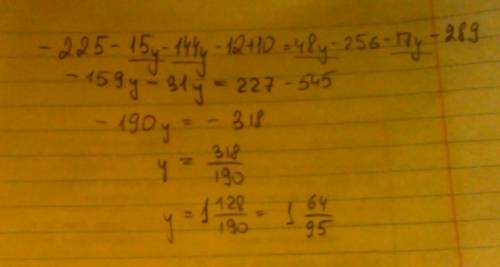 - 225 - 15y - 144y - 12 + 10 = 48y - 256 - 17y - 289
- 159y - 31y = 227 - 545
- 190y = - 318
y = 318/190
y = 1 128/190 = 1 64/95